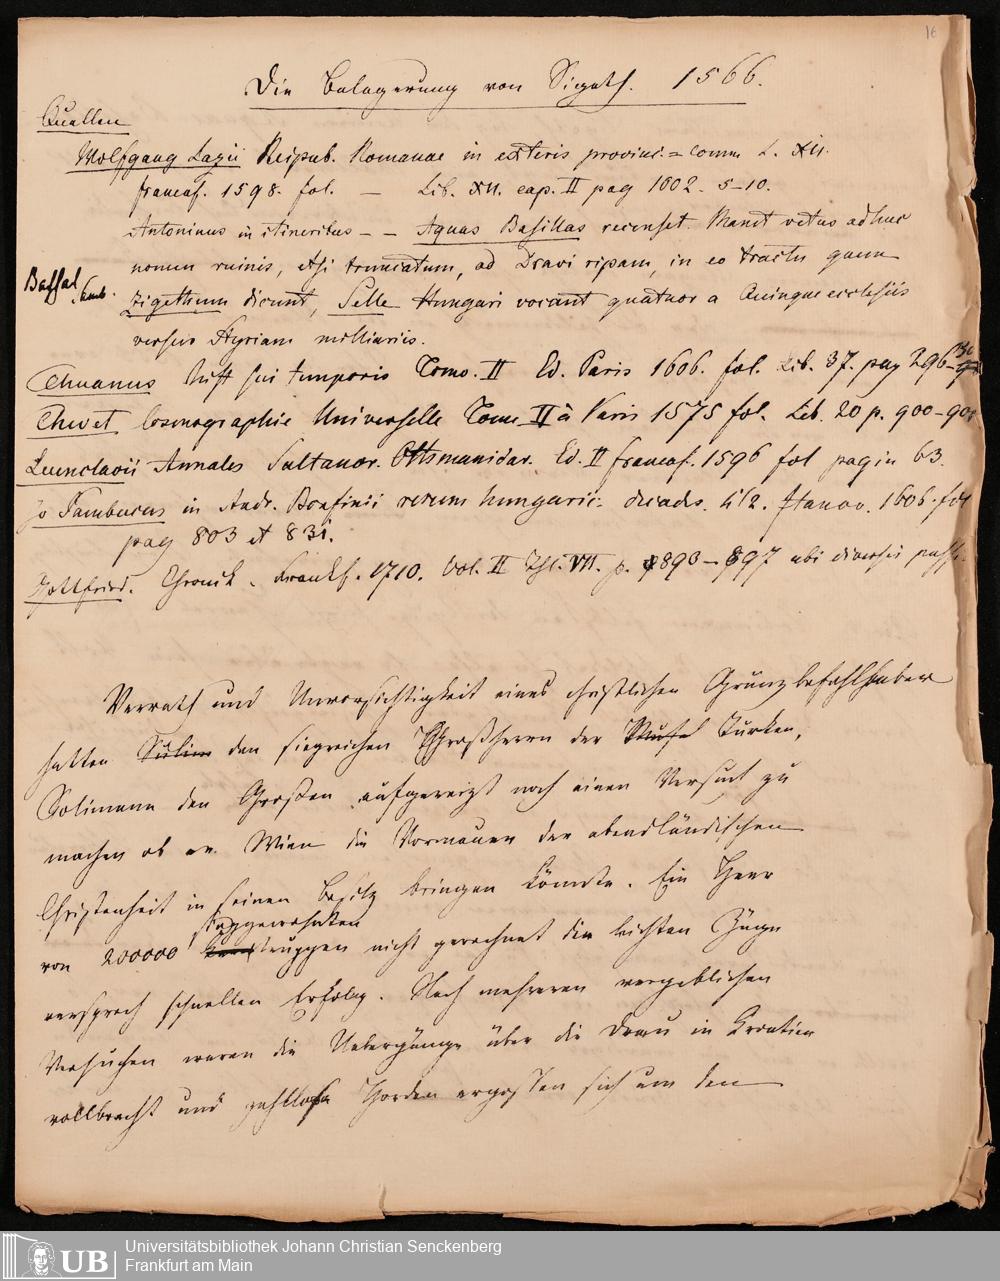 16
Die Belagerung von Sigeth. 1566.
Quellen
Wolfgang Lazii Reipub. Romanae in exteris provinc.= comm. L. XII.
francof. 1598. fol. — Lib. XII. cap. II pag 1002. 5-10.
Antoninus in itineribus – – Aquas Bassillas recenset. Manet vetus adhuc
nomen ruinis, etsi truncatum, ad Dravi ripam, in eo tractu quem
Bassal
Zigethum dicunt, Selle Hungari vocant quatuor a Quinqueecclesiis
versus Styriam milliariis.
Thuanus hist sui temporis Tomo. II Ed. Paris 1606. fol. Lib. 37. pag 296-
Thevet Cosmographie Universelle Tome II à Paris 1575 fol. Lib. 20 p. 900-901
Leunclavii Annales Sultanor. Othmanidar. Ed. II francof. 1596 fol pagin 63.
Jo Sambucus in Andr. Bonfinii rerum hungaric: decads. 4 1/2. Hanov. 1606. fol
pag 803 et 831.
Gottfried. Chronik. Frankf. 1710. Vol. II Thl. VII. p. 893-897 ubi diversis
Verrath und Unvorsichtigkeit eines christlichen Gränzbefehlhaber
hatten Sulim den siegreichen Großherrn der Musel Türken,
Solimann den Großen aufgereizt noch einen Versuch zu
machen ob er Wien die Vormauer der abendländischen
Christenheit in seinen Besitz bringen könnte. Ein Heer
sieggewohnten
von 200000 truppen nicht gerechnet die leichten Züge
versprach schnellen Erfolg. Nach mehreren vergeblichen
Versuchen waren die Uebergänge über die Drau in Kroatien
vollbracht und zahllose Horden ergoßen sich um den
Universitätsbibliothek Johann Christian Senckenberg
Frankfurt am Main
UB